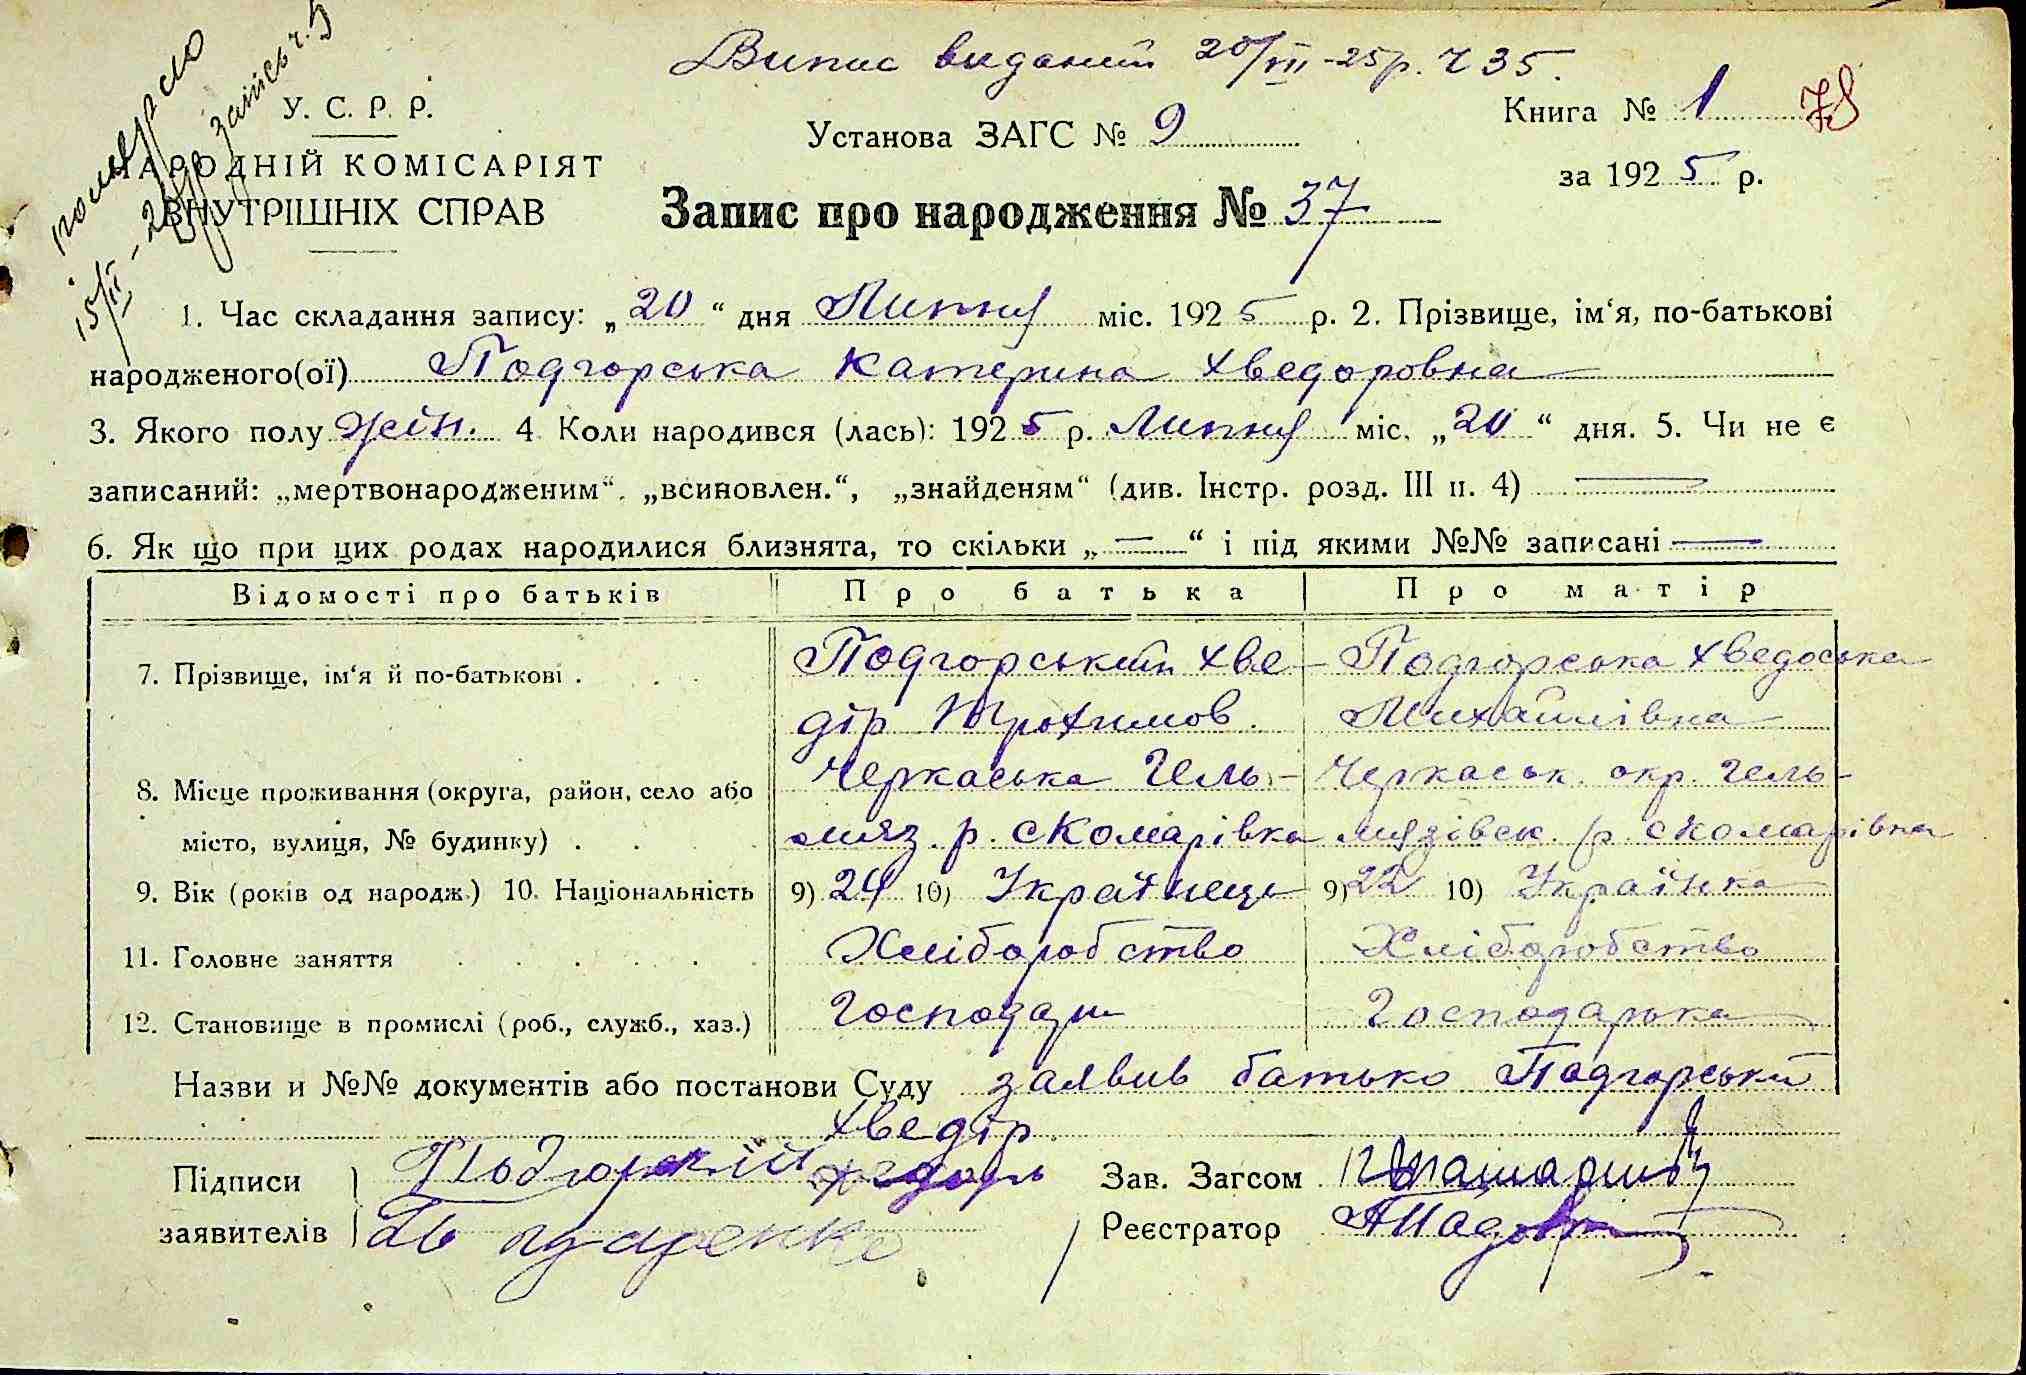 Випис виданий 20/VII-25р. Ч 35.
померло
15/II - 26р запись ч. 5
У. С. Р. Р.
НАРОДНІЙ КОМІСАРІЯТ
ВНУТРІШНІХ СПРАВ
Установа ЗАГС № 9
Книга № 1 78
за 1925 р.
Запис про народження № 37
1. Час складання запису: „20“ дня Липня міс. 1925 р. 2. Прізвище, ім‘я, по-батькові
народженого(ої) Подгорська Катерина Хведоровна
3. Якого полу жін. 4 Коли народився (лась): 1925 р. Липня міс. „20“ дня. 5. Чи не є
записаний: „мертвонародженим“. „всиновлен.“, „знайденям“ (див. Інстр. розд. III п. 4) —
6. Як що при цих родах народилися близнята, то скільки „—“ і під якими №№ записані —
Відомості про батьків Про батька Про матір
7. Прізвище, ім‘я й по-батькові . Подгорський Хве- Подгорська Хведоська
дір Трохимов. Михайлівна
8. Місце проживання (округа, район, село або Черкаська Гель- Черкаськ. окр. Гель-
місто, вулиця, № будинку) . мяз. р. с Комарівка мязівськ. р. с Комарівка
9. Вік (років од народж.) 10. Національність 9) 24 10) Українець 9) 22 10) Українка
11. Головне заняття Хліборобство Хліборобство
12. Становище в промислі (роб., служб., хаз.) Господарь Господарька
Назви и №№ документів або постанови Суду заявив батько Подгорський
Хведір.
Підписи Подгорский Федорь Зав. Загсом
заявителів Реєстратор